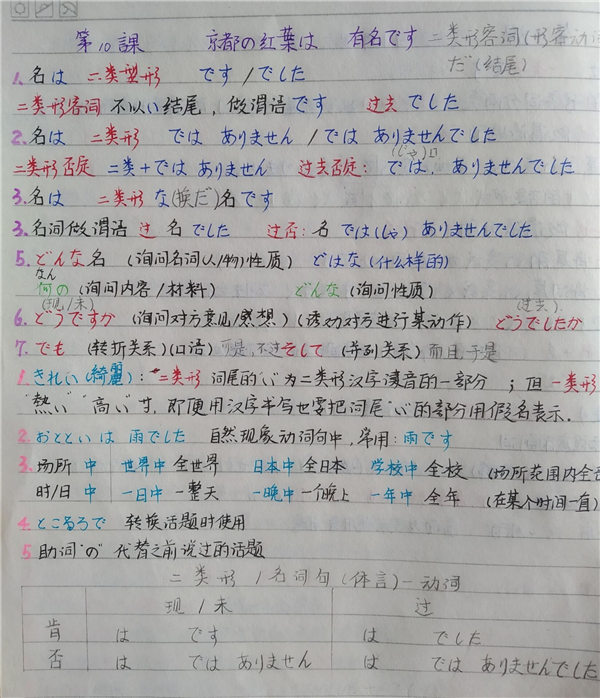 第10課 京都の紅葉は 有名です 二类形容词(形容动
だ(结尾)
1.名は 二类型形 です/でした
二类形容词 不以い结尾,做谓语です 过去でした
2.名は 二类形 では ありません/では ありませんでした
(じゃ)
二类形否定 二类+では ありません 过去否定:では. ありませんでした
3.名は 二类形 な(换だ)名です
3.名词做谓语 过 名でした 过否:名 では(じゃ) ありませんでした
5.どんな名 (询问名词(人/物)性质) どはな(什么样的)
なん
何の(询问内容/材料) どんな(询问性质)
(现/未) (过去)
6.どうですか (询问对方意见/感想)(诱劝对方进行某动作) どうでしたか
7.でも (转折关系)(口语) 可是,不过 そして (并列关系) 而且,于是
1.きれい(綺麗):二类形 词尾的"い"为二类形汉字读音的一部分 ;但一类形
"熱い" "高い"寸,即使用汉字书写也要把词尾"い"的部分用假名表示.
2.おとといは 雨でした 自然现象动词句中,常用:雨です
3.场所 中 世界中 全世界 日本中 全日本 学校中 全校 (场所范围内全
时/日 中 一日中 一整天 一晚中 一个晚上 一年中 全年 (在某个时间一直)
4.ところるで 转换话题时使用
5.助词"の" 代替之前说过的话题
二类形 /名词句(体言)-动词
现/未 过
肯 は です は でした
否 は では ありません は では ありませんでした